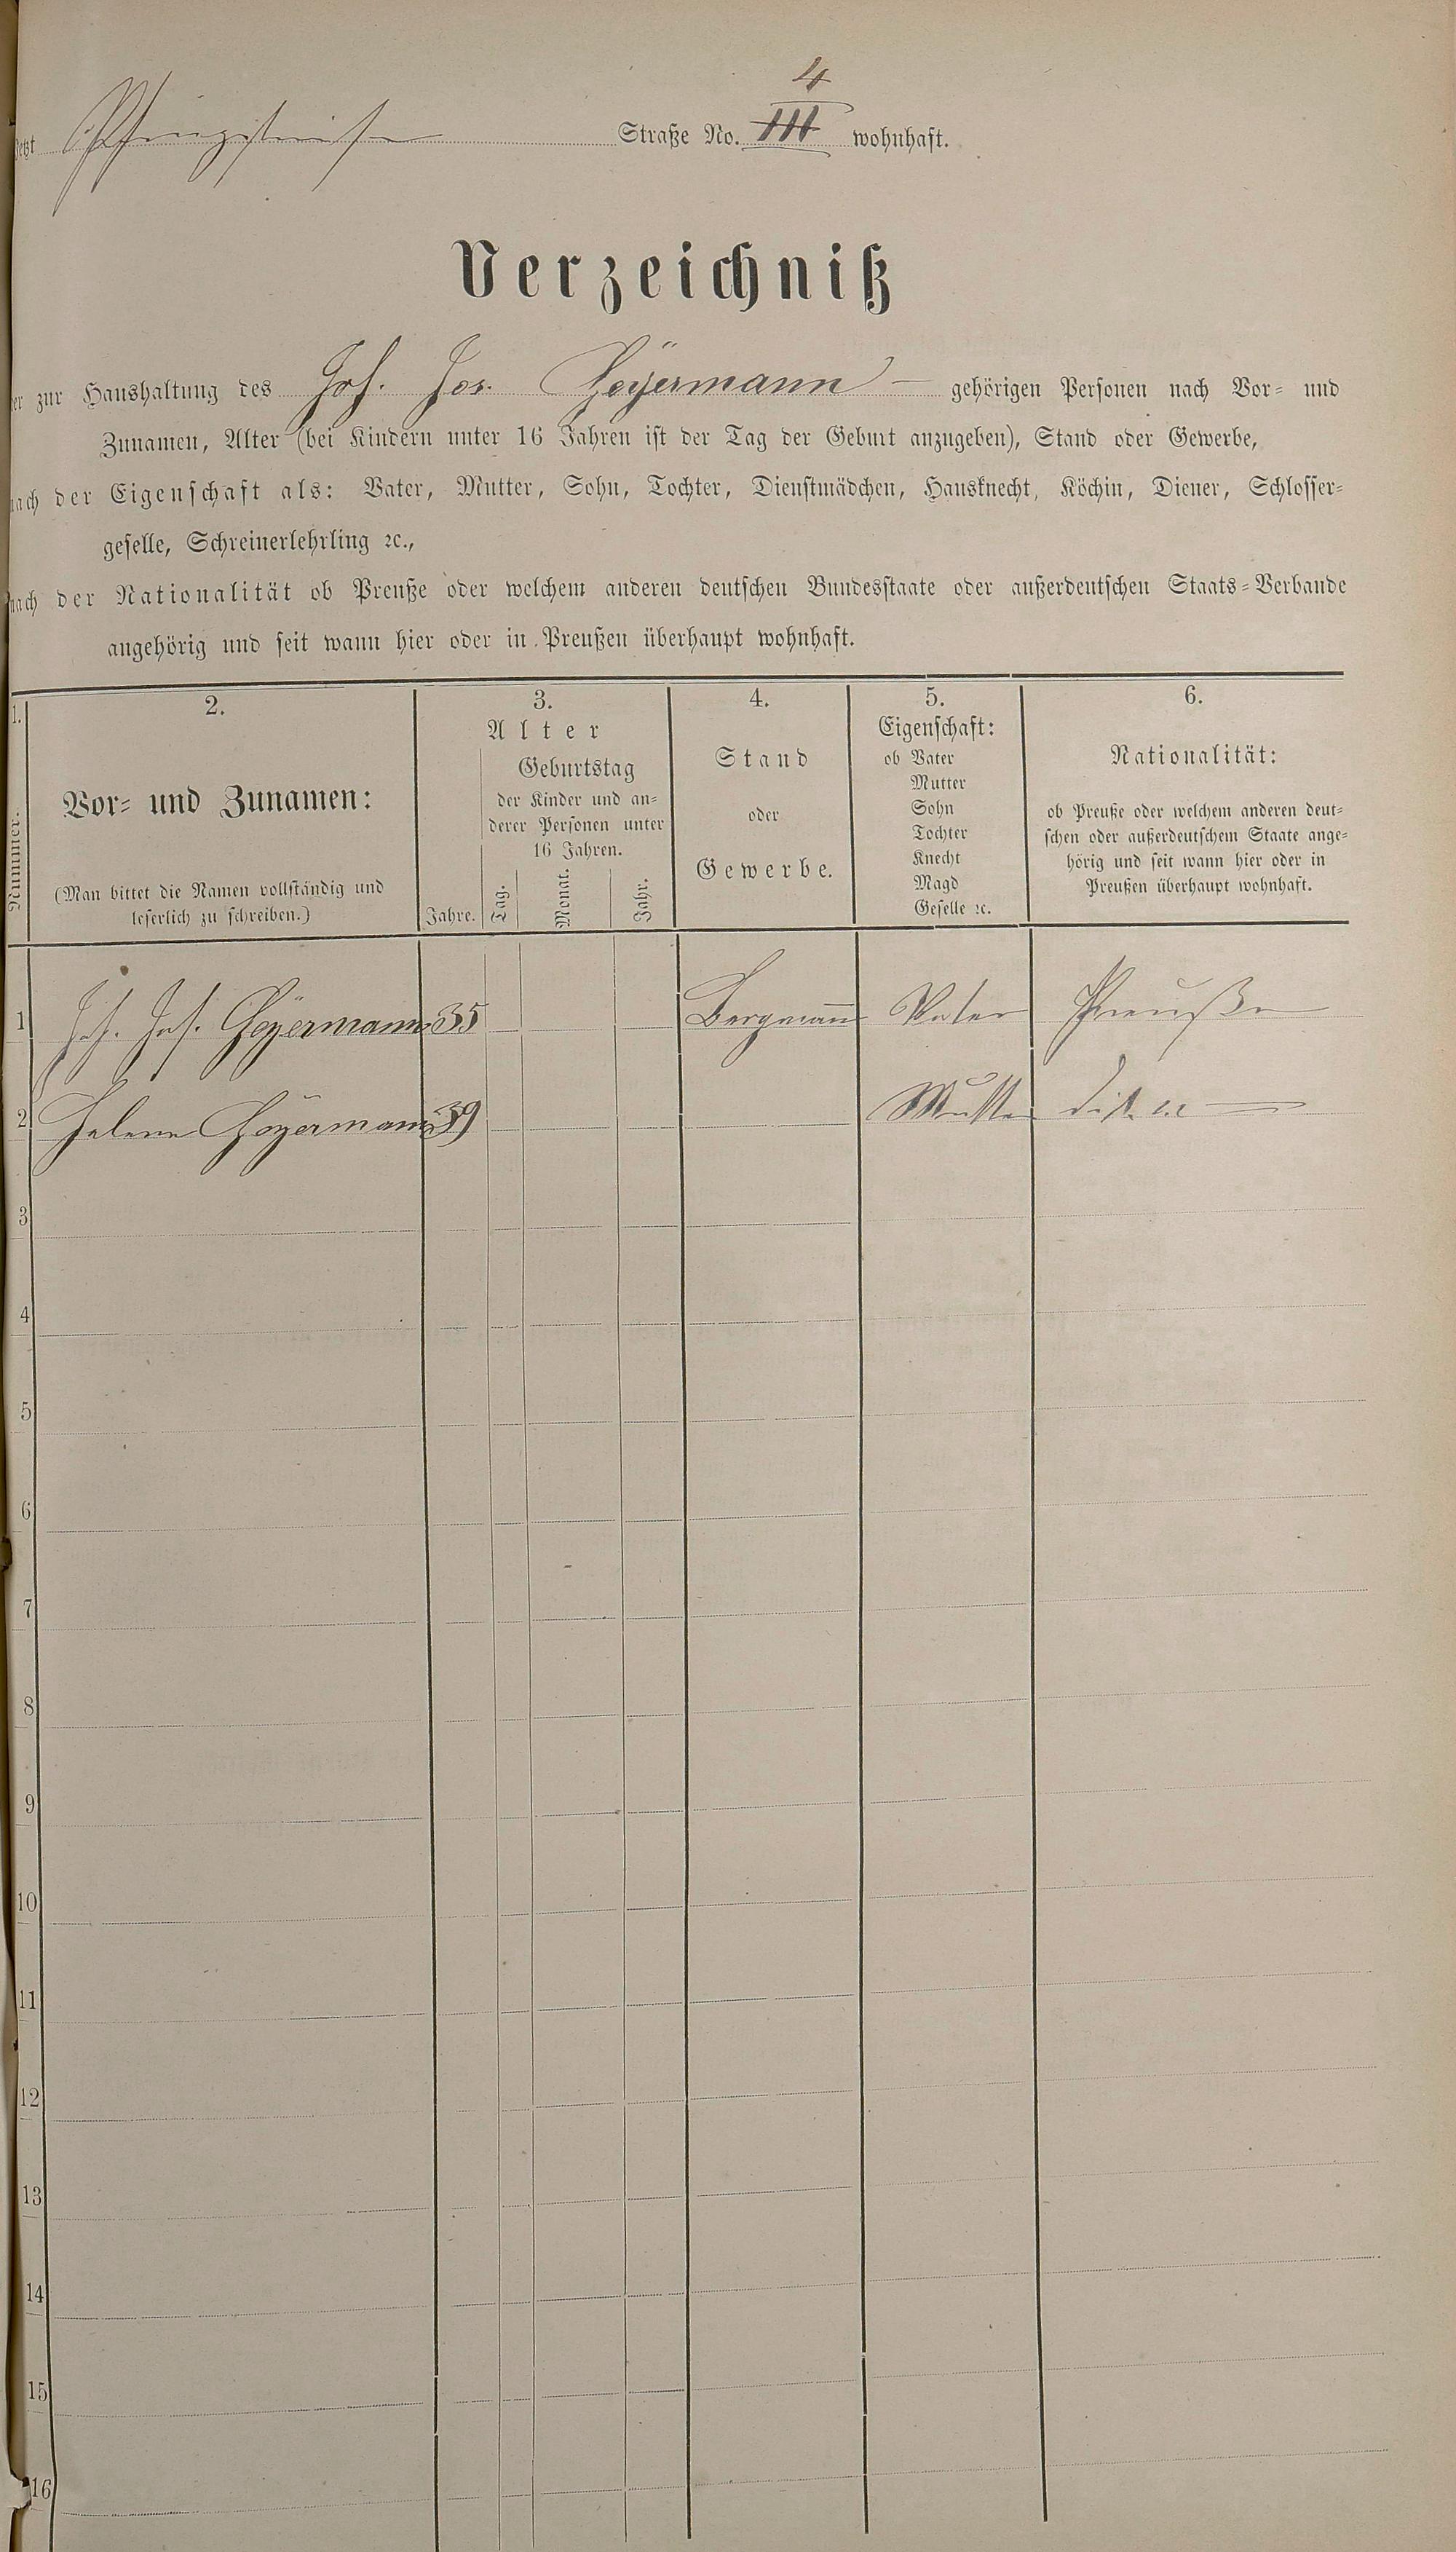 4
jetzt Pfingstwiese Straße No. III wohnhaft.
Verzeichniß
der zur Haushaltung des Joh. Jos. Heÿermann — gehörigen Personen nach Vor- und
Zunamen, Alter (bei Kindern unter 16 Jahren ist der Tag der Geburt anzugeben), Stand oder Gewerbe,
nach der Eigenschaft als: Vater, Mutter, Sohn, Tochter, Dienstmädchen, Hausknecht, Köchin, Diener, Schlosser-
geselle, Schreinerlehrling ꝛc.,
nach der Nationalität ob Preuße oder welchem anderen deutschen Bundesstaate oder außerdeutschen Staats-Verbande
angehörig und seit wann hier oder in Preußen überhaupt wohnhaft.
1. 2. 3. 4. 5. 6.
Nummer.
Vor- und Zunamen:
(Man bittet die Namen vollständig und
leserlich zu schreiben.)
Alter
Geburtstag
der Kinder und an-
derer Personen unter
16 Jahren.
Jahre. Tag. Monat. Jahr.
Stand
oder
Gewerbe.
Eigenschaft:
ob Vater
Mutter
Sohn
Tochter
Knecht
Magd
Geselle ꝛc.
Nationalität:
ob Preuße oder welchem anderen deut-
schen oder außerdeutschem Staate ange-
hörig und seit wann hier oder in
Preußen überhaupt wohnhaft.
1 Joh. Jos. Heÿermann 35 Bergmann Vater Preuße
2 Helene Heÿermann 39 Mutter dito
3
4
5
6
7
8
9
10
11
12
13
14
15
16